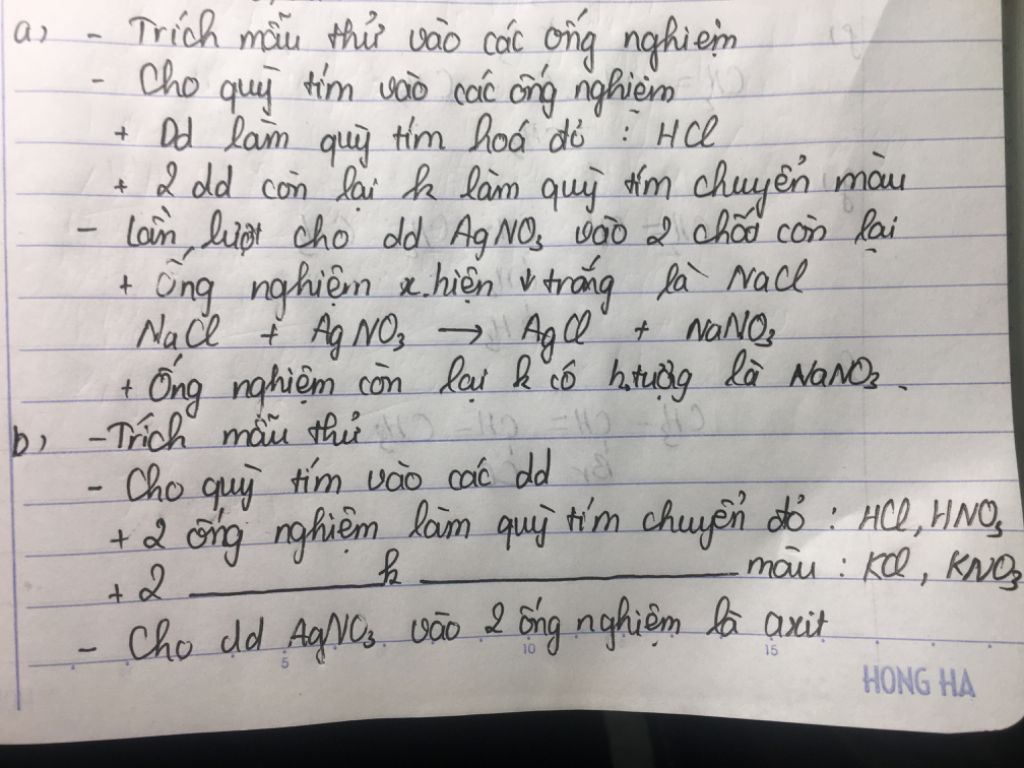 a) - Trích mẫu thử vào các ống nghiệm
- Cho quỳ tím vào các ống nghiệm
+ Dd làm quỳ tím hoá đỏ : HCl
+ 2 dd còn lại k làm quỳ tím chuyển màu
- Lần lượt cho dd AgNO₃ vào 2 chất còn lại
+ Ống nghiệm x.hiện ↓ trắng là NaCl
NaCl + AgNO₃ → AgCl + NaNO₃
+ Ống nghiệm còn lại k có h.tượng là NaNO₃.
b) - Trích mẫu thử
- Cho quỳ tím vào các dd
+ 2 ống nghiệm làm quỳ tím chuyển đỏ : HCl, HNO₃
+ 2 ______ k ______ màu : KCl, KNO₃
- Cho dd AgNO₃ vào 2 ống nghiệm là axit
5 10 15
HONG HA